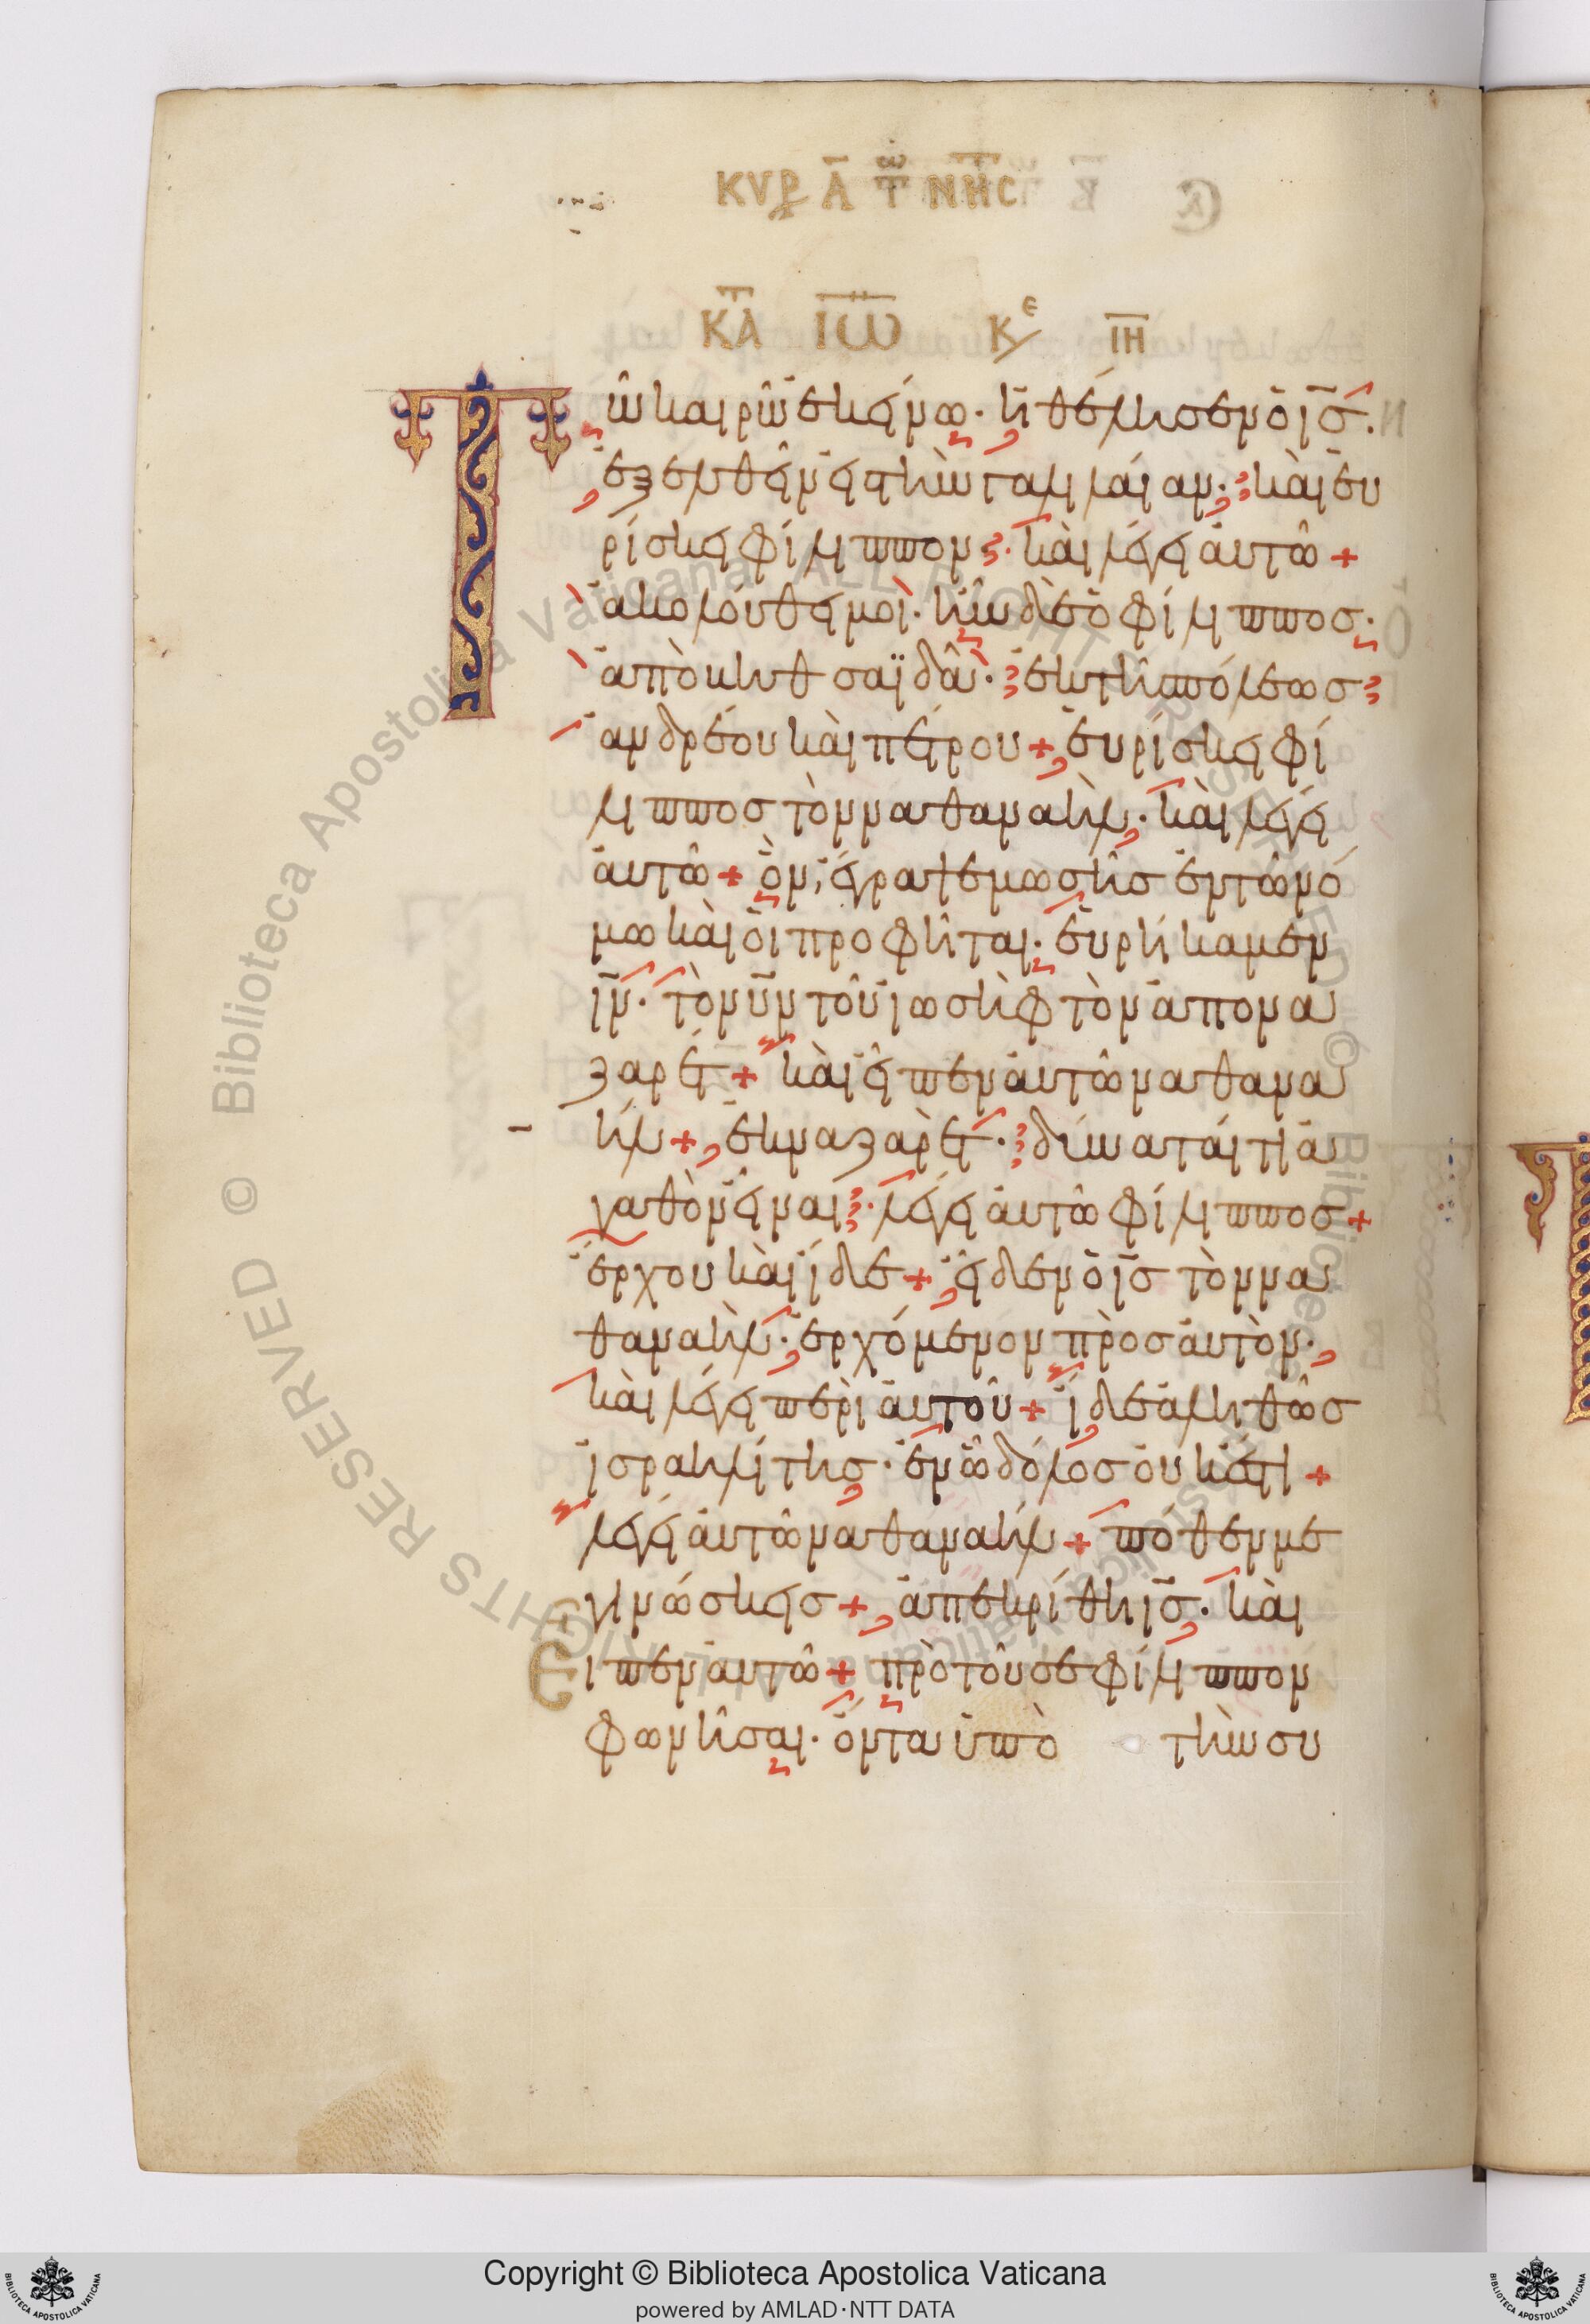 ΚΥΡ Α ΤΩ ΝΗϹ
ΚΑΤ ΙΩ ΚΕ ΙΗ
Τῶ καιρῶ ἐκείνω· ἠθέλησεν ὁ ις̅·
ἐξελθεῖν εἰς τὴν γαλιλάιαν· καὶ ἑυ
ρίσκει φίλιππον· καὶ λέγει ἀυτῶ +
ἀκολούθει μοὶ· ἦν δὲ ὁ φίλιππος·
ἀπὸ βηθσαϊδὰ· ἐκ τῆς πόλεως
ἀνδρέου καὶ πέτρου + ἑυρίσκει φί
λιππος τὸν ναθαναὴλ· καὶ λέγει
ἀυτῶ + ὃν ἔγραψε μωσῆς ἐν τῶ νό
μω καὶ ὁι προφῆται· ἑυρήκαμεν
ιν̅· τὸν υν̅ τοῦ ἰωσὴφ τὸν ἀπο να
ζαρέτ + καὶ εἶπεν ἀυτῶ ναθανα
ήλ + ἐκ ναζαρὲτ· δύναται τι ἀ
γαθὸν εἶναι· λέγει ἀυτῶ φίλιππος +
ἔρχου καὶ ἴδε + εἶδεν ὁ ις̅ τὸν να
θαναὴλ· ἐρχόμενον πρὸς ἀυτὸν·
καὶ λέγει περὶ ἀυτοῦ + ἴδε ἀληθῶς
ἰσραηλίτης· ἐν ὧ δόλος ὀυκ ἔστι +
λέγει ἀυτῶ ναθαναήλ + πόθεν με
γινώσκεις + ἀπεκρίθη ις̅· καὶ
Ειπεν ἀυτῶ + πρὸ τοῦ σε φίλιππον
φωνῆσαι· ὄντα ὑπὸ τὴν συ
Copyright © Biblioteca Apostolica Vaticana
powered by AMLAD·NTT DATA